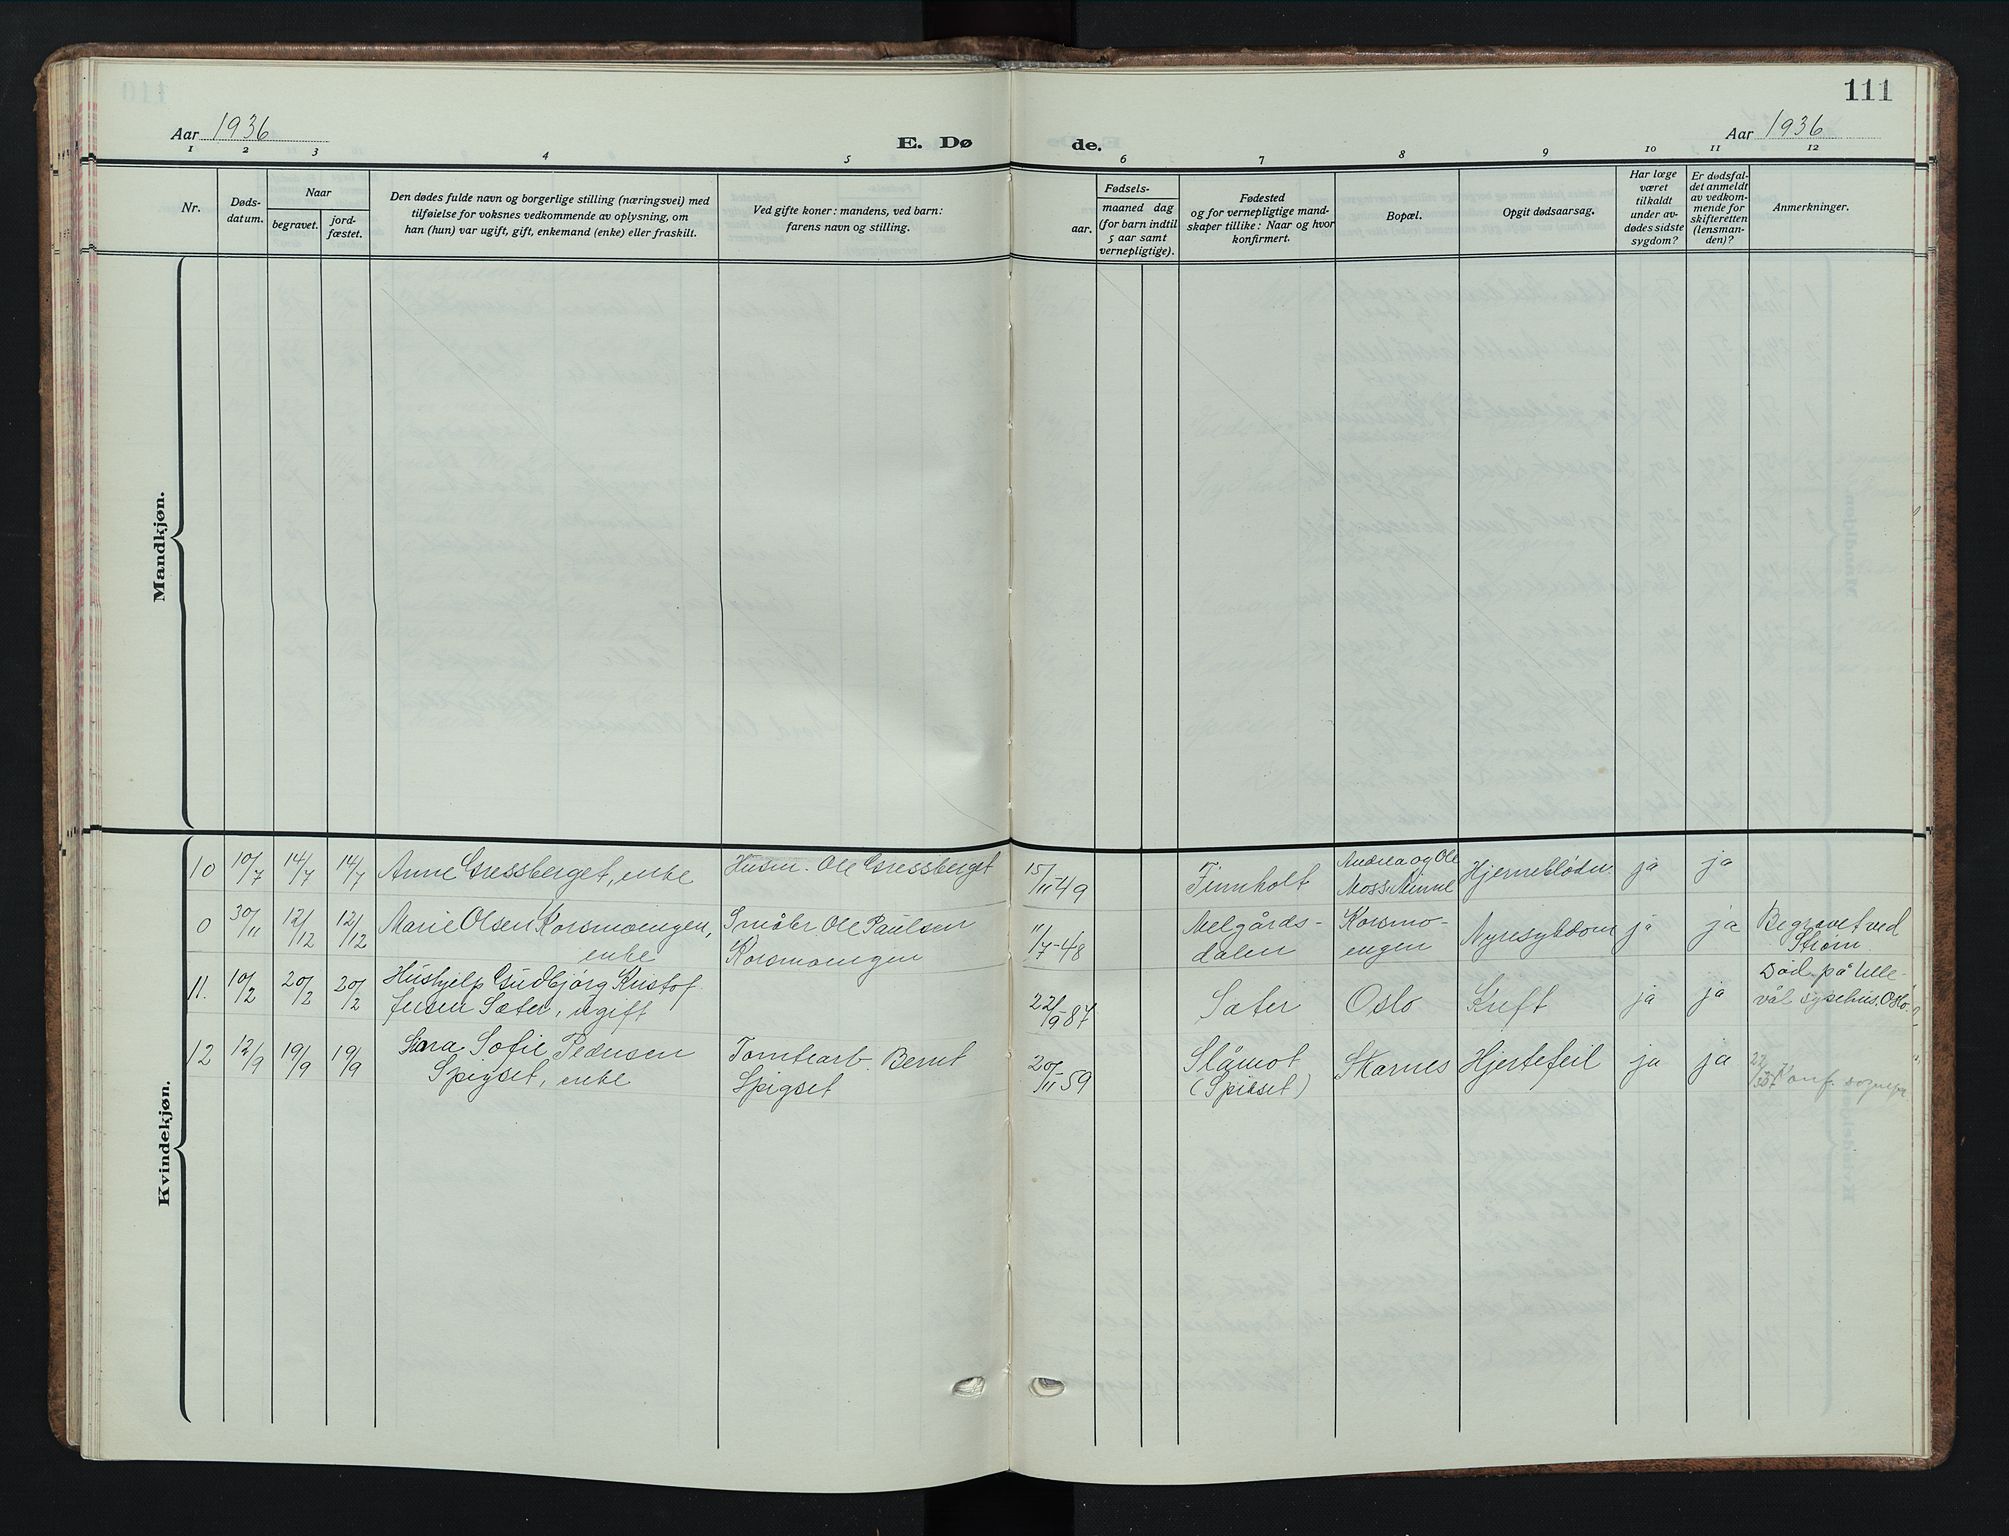 111
Aar 1936
E. Dø
de.
Aar 1936
1 2 3 4 5 6 7 8 9 10 11 12
Nr.
Døds-
datum.
Naar
begravet.
jord-
fæstet.
Den dødes fulde navn og borgerlige stilling (næringsvei) med
tilføielse for voksnes vedkommende av oplysning, om
han (hun) var ugift, gift, enkemand (enke) eller fraskilt.
Ved gifte koner: mandens, ved barn:
farens navn og stilling.
Fødsels-
aar.
maaned dag
(for barn indtil
5 aar samt
vernepligtige).
Fødested
og for vernepligtige mand-
skaper tillike: Naar og hvor
konfirmert.
Bopæl.
Opgit dødsaarsag.
Har læge
været
tilkaldt
under av-
dødes sidste
sygdom?
Er dødsfal-
det anmeldt
av vedkom-
mende for
skifteretten
(lensman-
den)?
Anmerkninger.
Mandkjøn.
Kvindekjøn.
10 10/7 14/7 14/7 Anne Gressberget, enke
Husm. Ole Gressberget
15/11-49 Finnholt
Andrea og Ole
Moss Minne
Hjerneblødn. ja ja
0 30/11 12/12 12/12 Marie Olsen Korsmoengen,
enke
Småbr. Ole Paulsen
Korsmoengen
11/7-48
Melgårds-
dalen
Korsmo-
engen
Nyresykdom ja ja
Begravet ved
Strøm.
11. 10/2 20/2 20/2 Hushjelp Gudbjørg Kristof-
fersen Sæter, ugift
22/9-87 Sæter Oslo Kreft ja ja
Død på Ulle-
vål sykehus, Oslo.
12 12/9 19/9 19/9 Sofie Pedersen
Spigset, enke
Tomtearb. Bernt
Spigset
20/11-59
Slåmot
(Spigset)
Skarnes Hjertefeil ja ja
Konf. sognepr